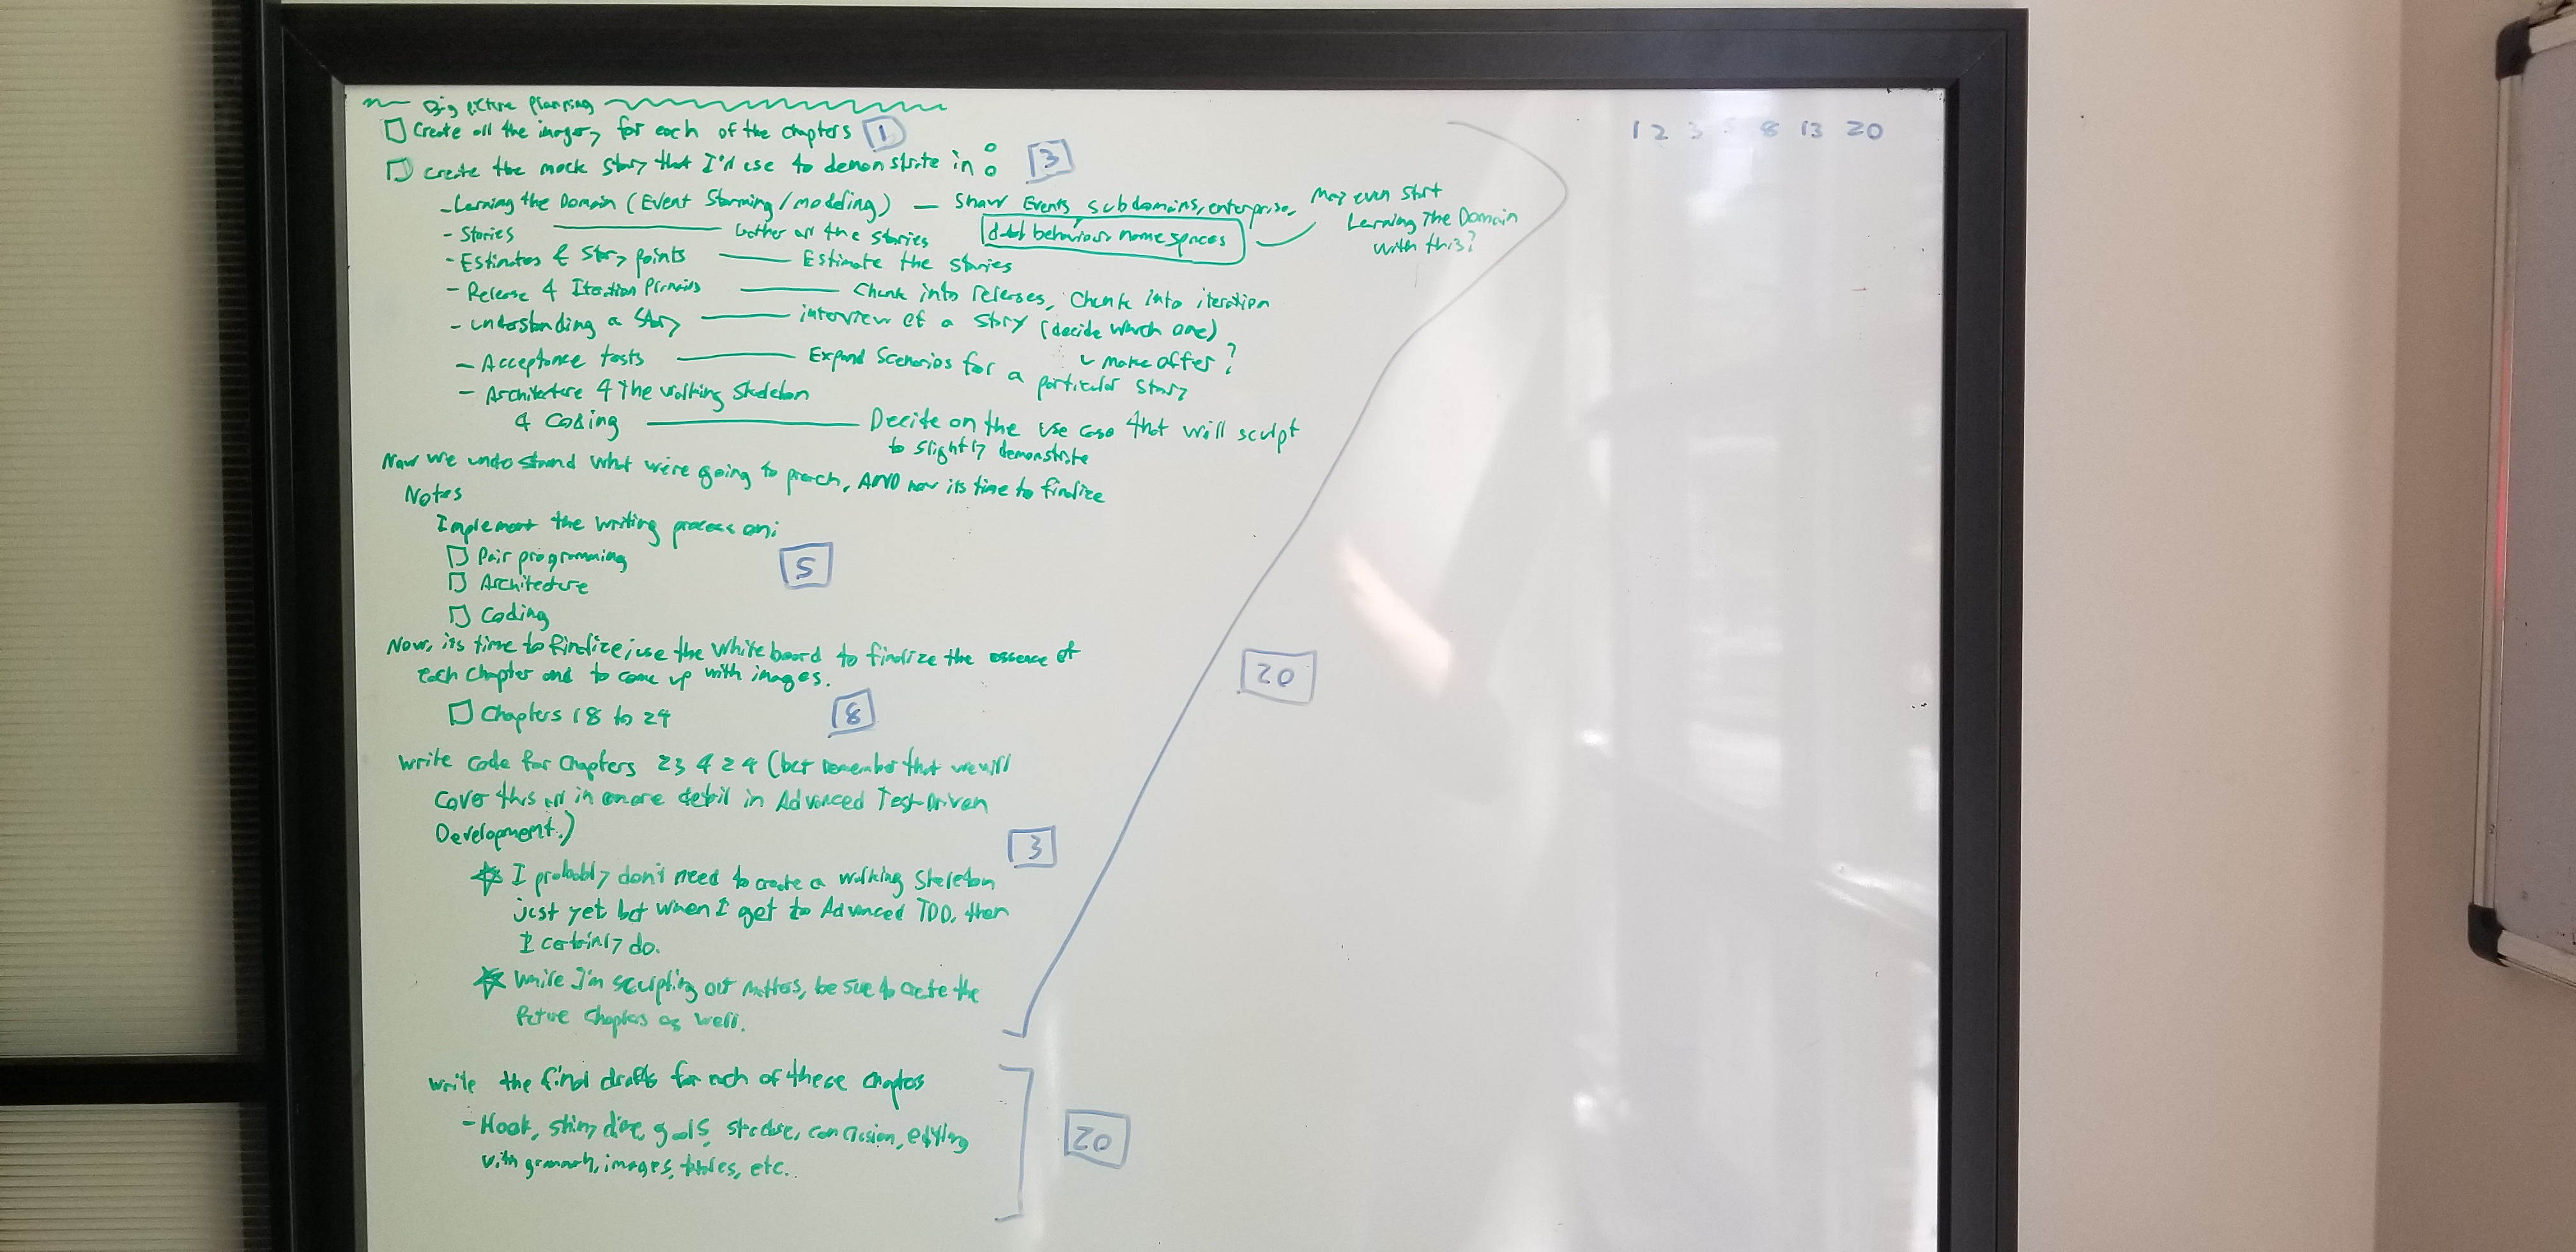 Big Picture Planning
Create all the imagery for each of the chapters 1
Create the mock story that I'll use to demonstrate in: 3
- Learning the Domain (Event Storming/modeling) — Show Events, subdomains, enterprise,
behaviour namespaces
May even start
Learning The Domain
with this?
- Stories — Gather all the stories
- Estimates & Story points — Estimate the stories
- Release & Iteration Planning — Chunk into releases, Chunk into iteration
- Understanding a story — interview of a story (decide which one)
↳ make offer?
- Acceptance tests — Expand Scenarios for a particular story
- Architecture & the walking skeleton
& Coding — Decide on the use case that will sculpt
to slightly demonstrate
Now we understand what we're going to preach, AND now its time to finalize
Notes
Implement the writing process on:
Pair programming
Architecture
Coding
5
Now, its time to finalize; use the whiteboard to finalize the essence of
each chapter and to come up with images.
Chapters 18 to 24 8
Write code for Chapters 23 & 24 (but remember that we will
cover this all in more detail in Advanced Test-Driven
Development.)
3
I probably don't need to create a walking skeleton
just yet but when I get to Advanced TDD, then
I certainly do.
While I'm sculpting out matters, be sure to create the
future chapters as well.
20
Write the final drafts for each of these chapters
- Hook, goals, structure, conclusion, editing
with images, tables, etc.
20
1 2 3 8 13 20